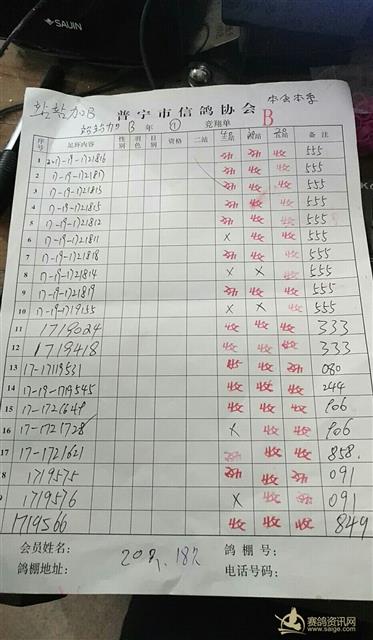 SAIJN
站站加B
本会本季
普宁市信鸽协会
站站加 B 年 ① 竞翔单 B
序号 足环内容 性别 羽色 目别 资格 二站 三站 四站 五站 备注
1 17-19-1721816 收 555
2 17-19-1721817 收 555
3 17-19-1721813 收 555
4 17-19-1721815 收 收 555
5 17-19-1721812 收 555
6 17-19-1721811 X 收 收 555
7 17-19-1721818 收 收 555
8 17-19-1721814 X X 收 555
9 17-19-1721819 收 收 555
10 17-19-1719135 X X 收 555
11 1719024 收 收 收 333
12 1719418 收 收 收 333
13 17-17119531 收 收 080
14 17-19-1719545 收 收 收 244
15 17-1721649 收 收 收 906
16 17-1721728 X 收 收 906
17 17-1721621 收 收 858
8 1719575 收 091
9 1719576 X 收 收 091
1719566 收 收 收 849
会员姓名: 20羽. 18次 鸽棚号:
鸽棚地址: 电话号码:
赛鸽资讯网
www.saige.com